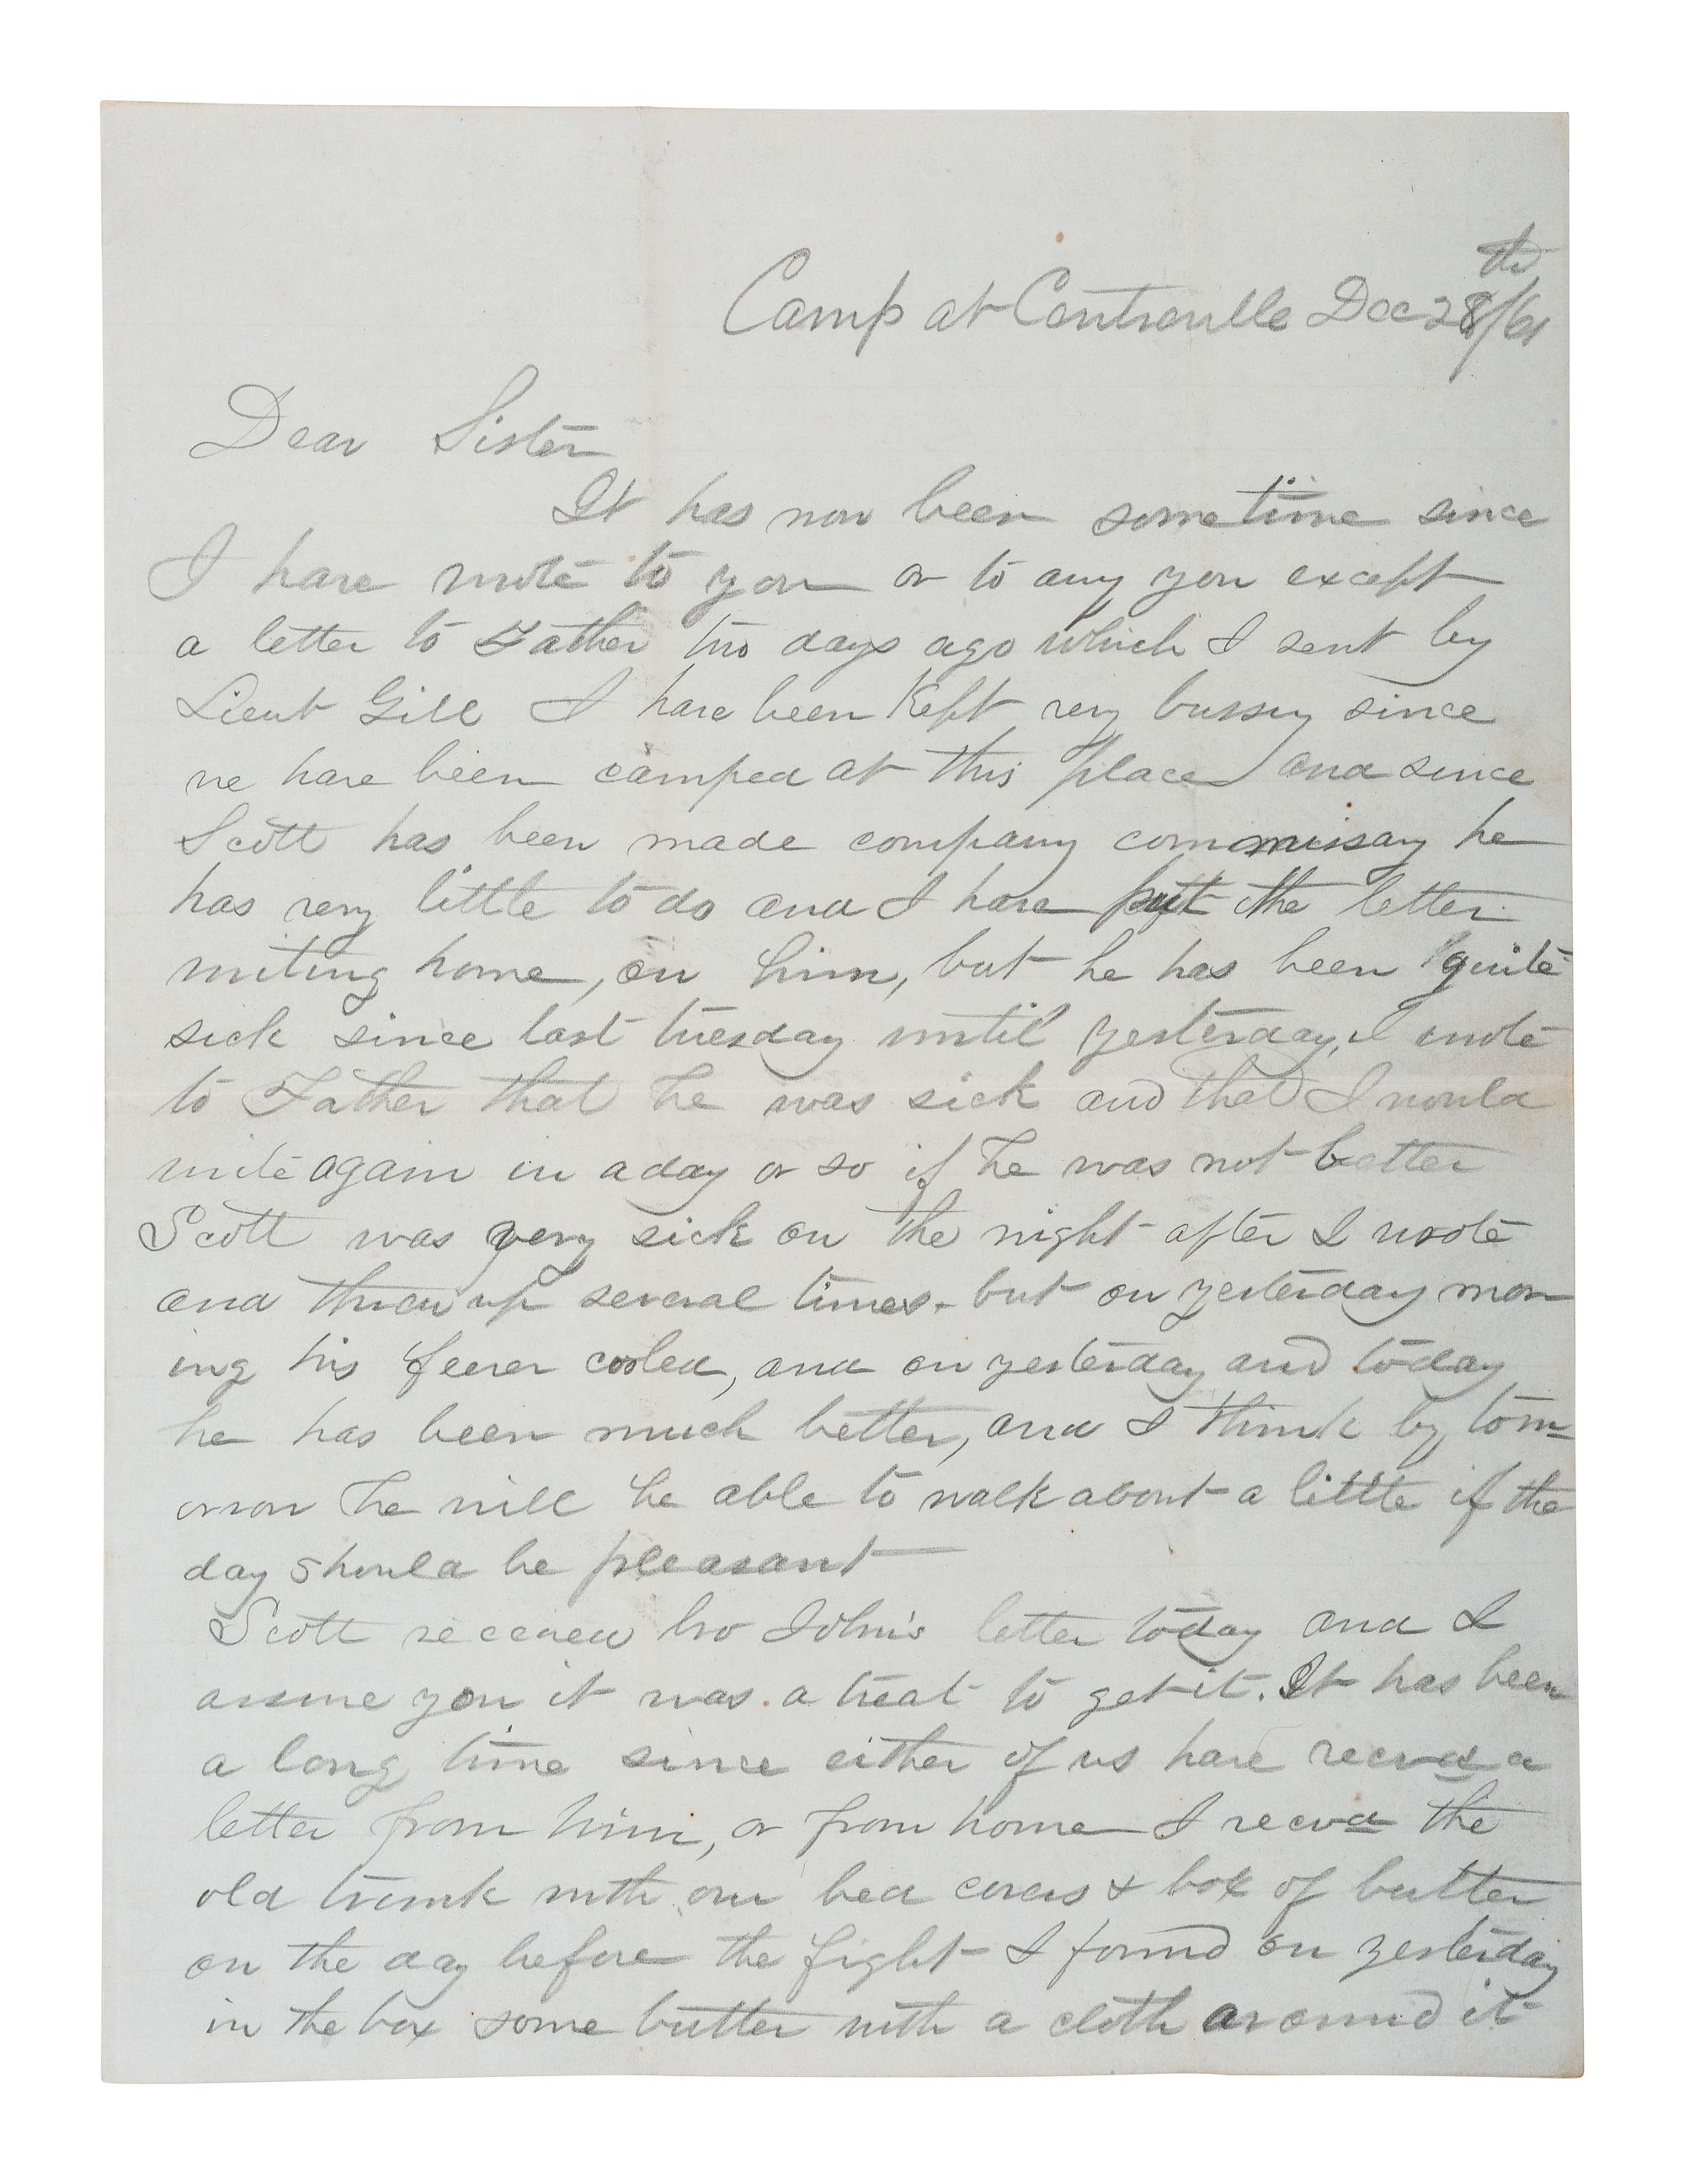 Camp at Centreville Dec 28th/61
Dear Sister
It has now been some time since
I have wrote to you or to any you except
a letter to Father two days ago which I sent by
Lieut Gill I have been Kept very bussy since
we have been camped at this place and since
Scott has been made company commissary he
has very little to do and I have putt the letter
writing home, on him, but he has been quite
sick since last tuesday until yesterday, I wrote
to Father that he was sick and that I would
write again in a day or so if he was not better
Scott was very sick on the night after I wrote
and threw up several times - but on yesterday mor
ing his feever cooled, and on yesterday and today
he has been much better, and I think by tom=
orrow he will be able to walk about a little if the
day should be pleasant
Scott received bro John's letter today and I
assure you it was a treat to get it. It has been
a long time since either of us have recvd a
letter from him, or from home I recvd the
old trunk with our bed covers & box of butter
on the day before the fight I found on yesterday
in the box some butter with a cloth around it